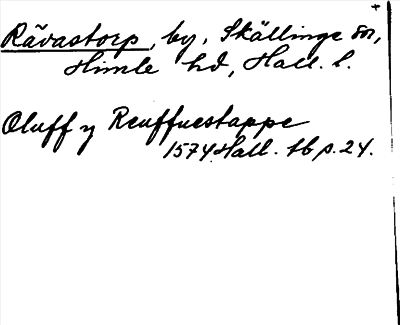 Rävastorp, by, Skällinge sn,
Himle hd, Hall. l.
Oluff y Reuffuestappe
1574 Hall. tb p. 24.